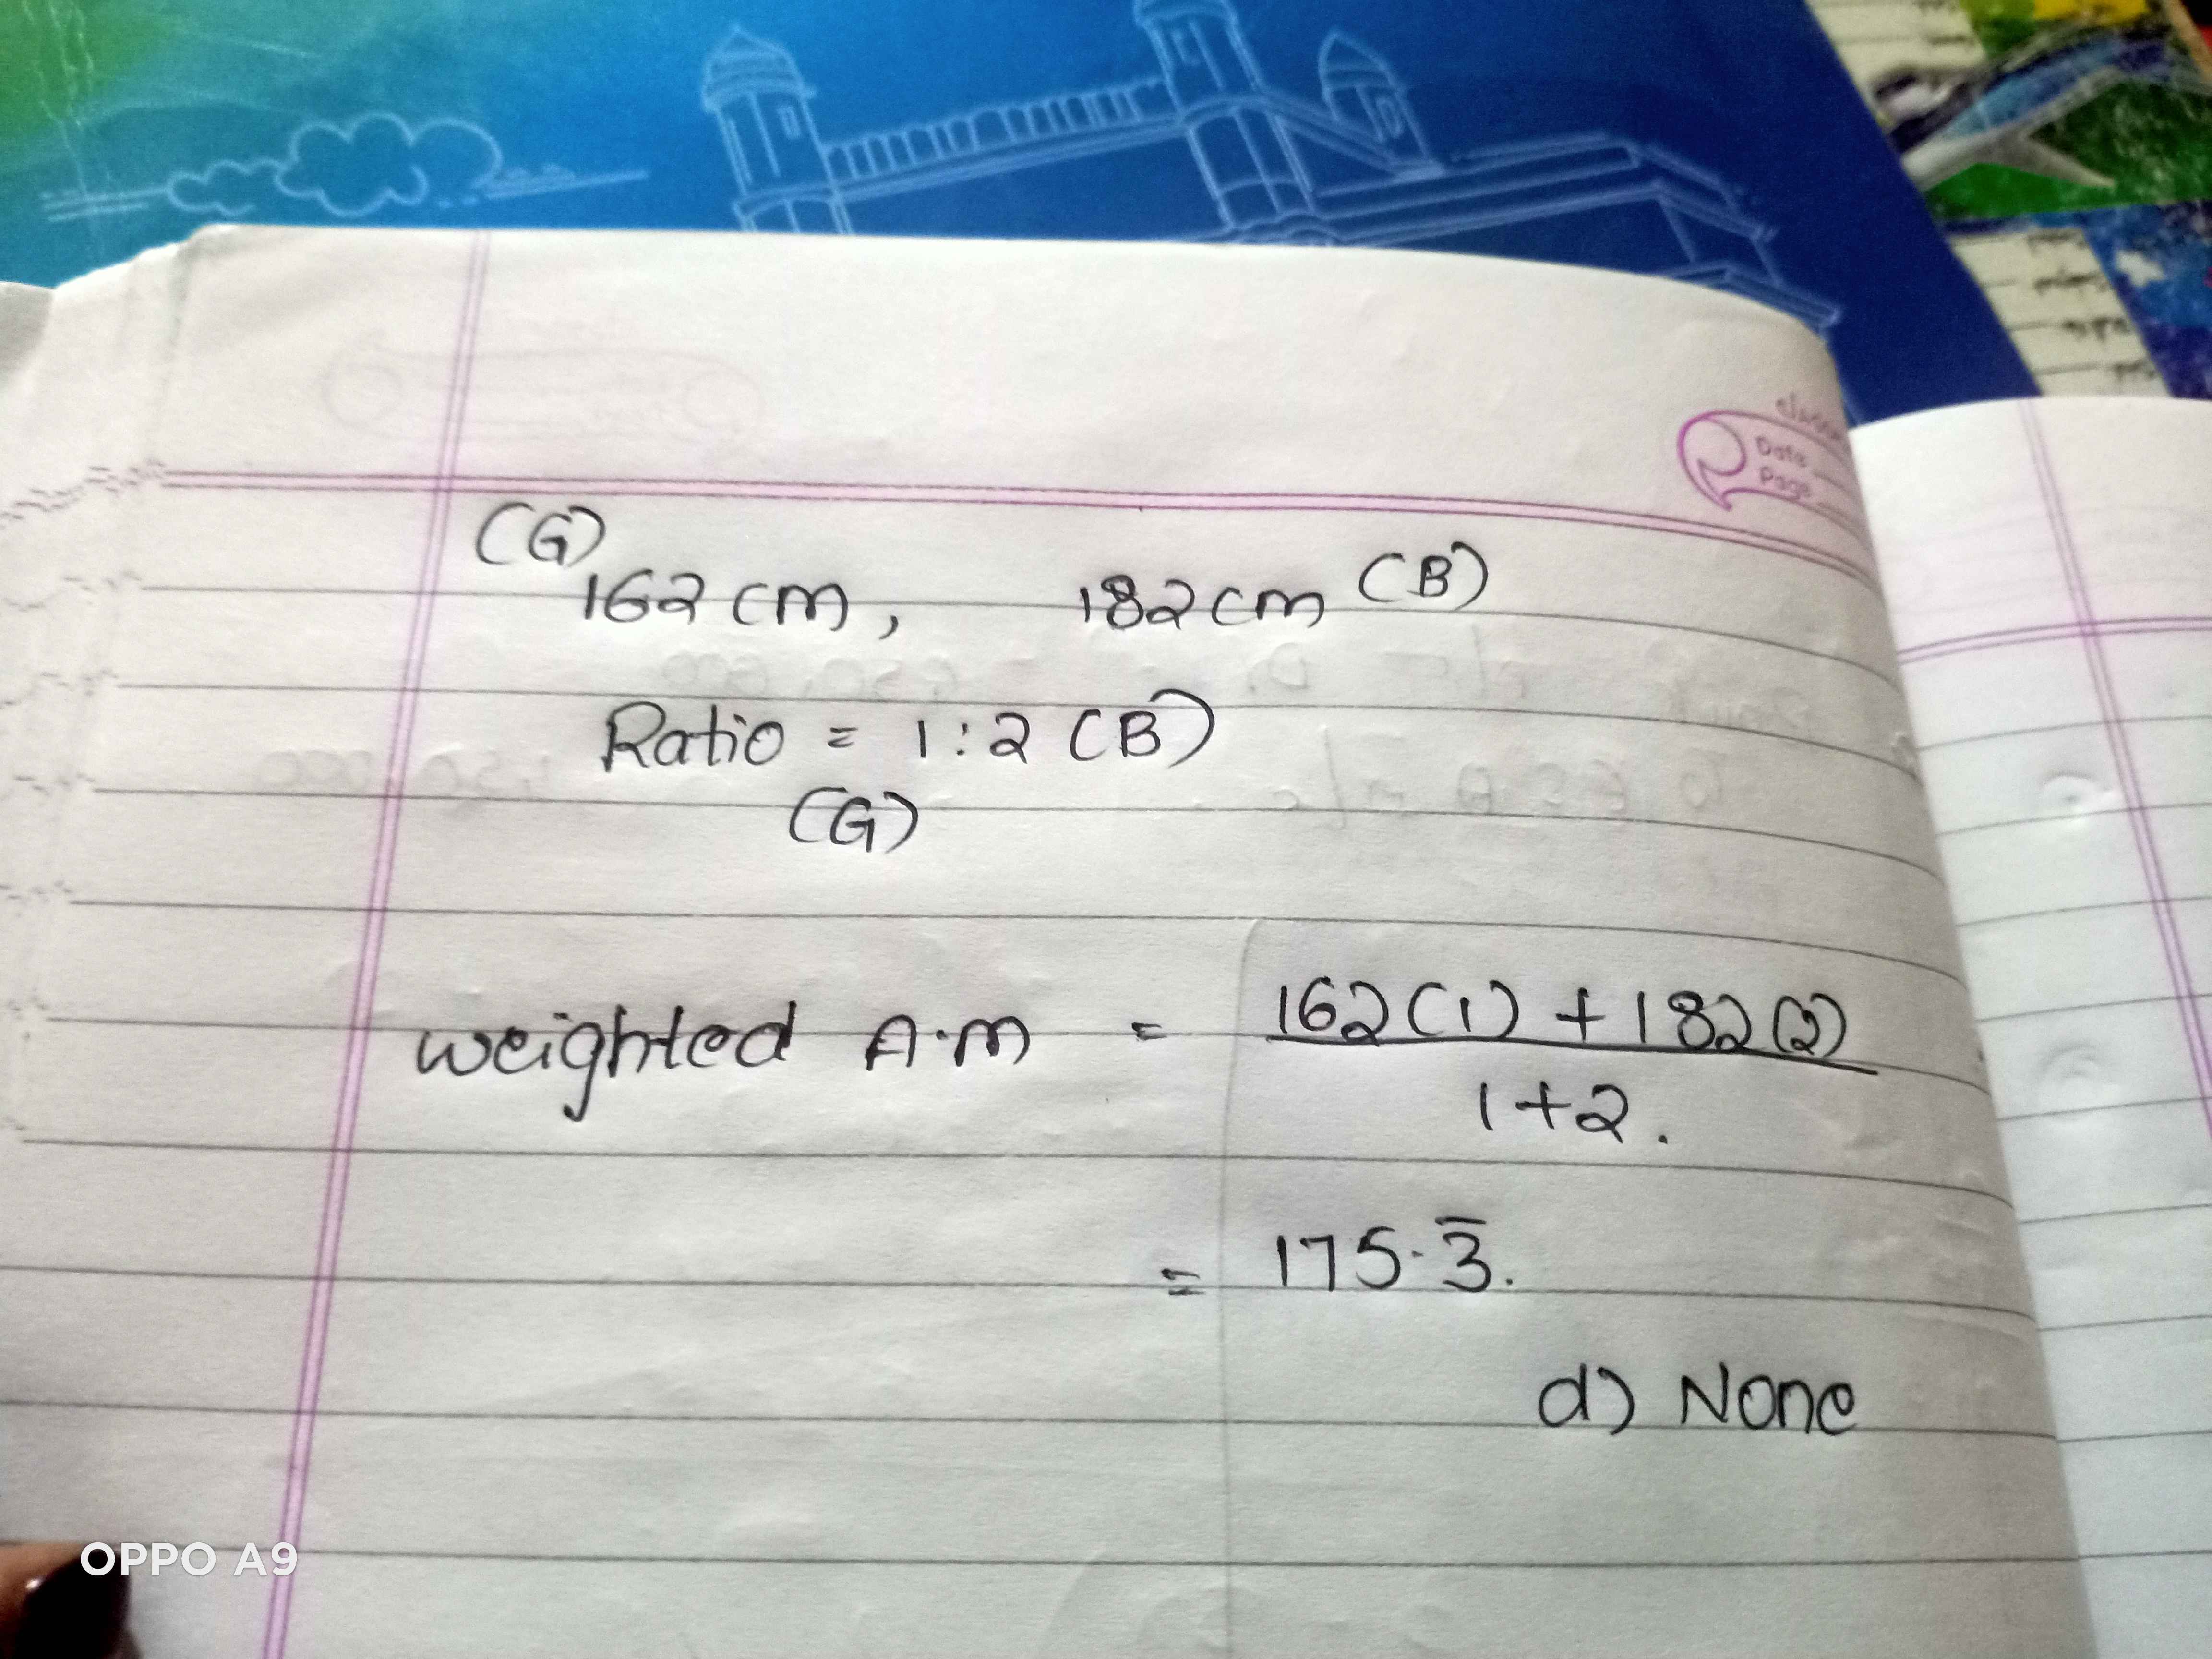 (G)
162 cm, 182 cm (B)
Ratio = 1:2 (B)
(G)
weighted A.M = 162(1) + 182(2)
1+2.
= 175.3̅.
d) None
Date
Page
OPPO A9